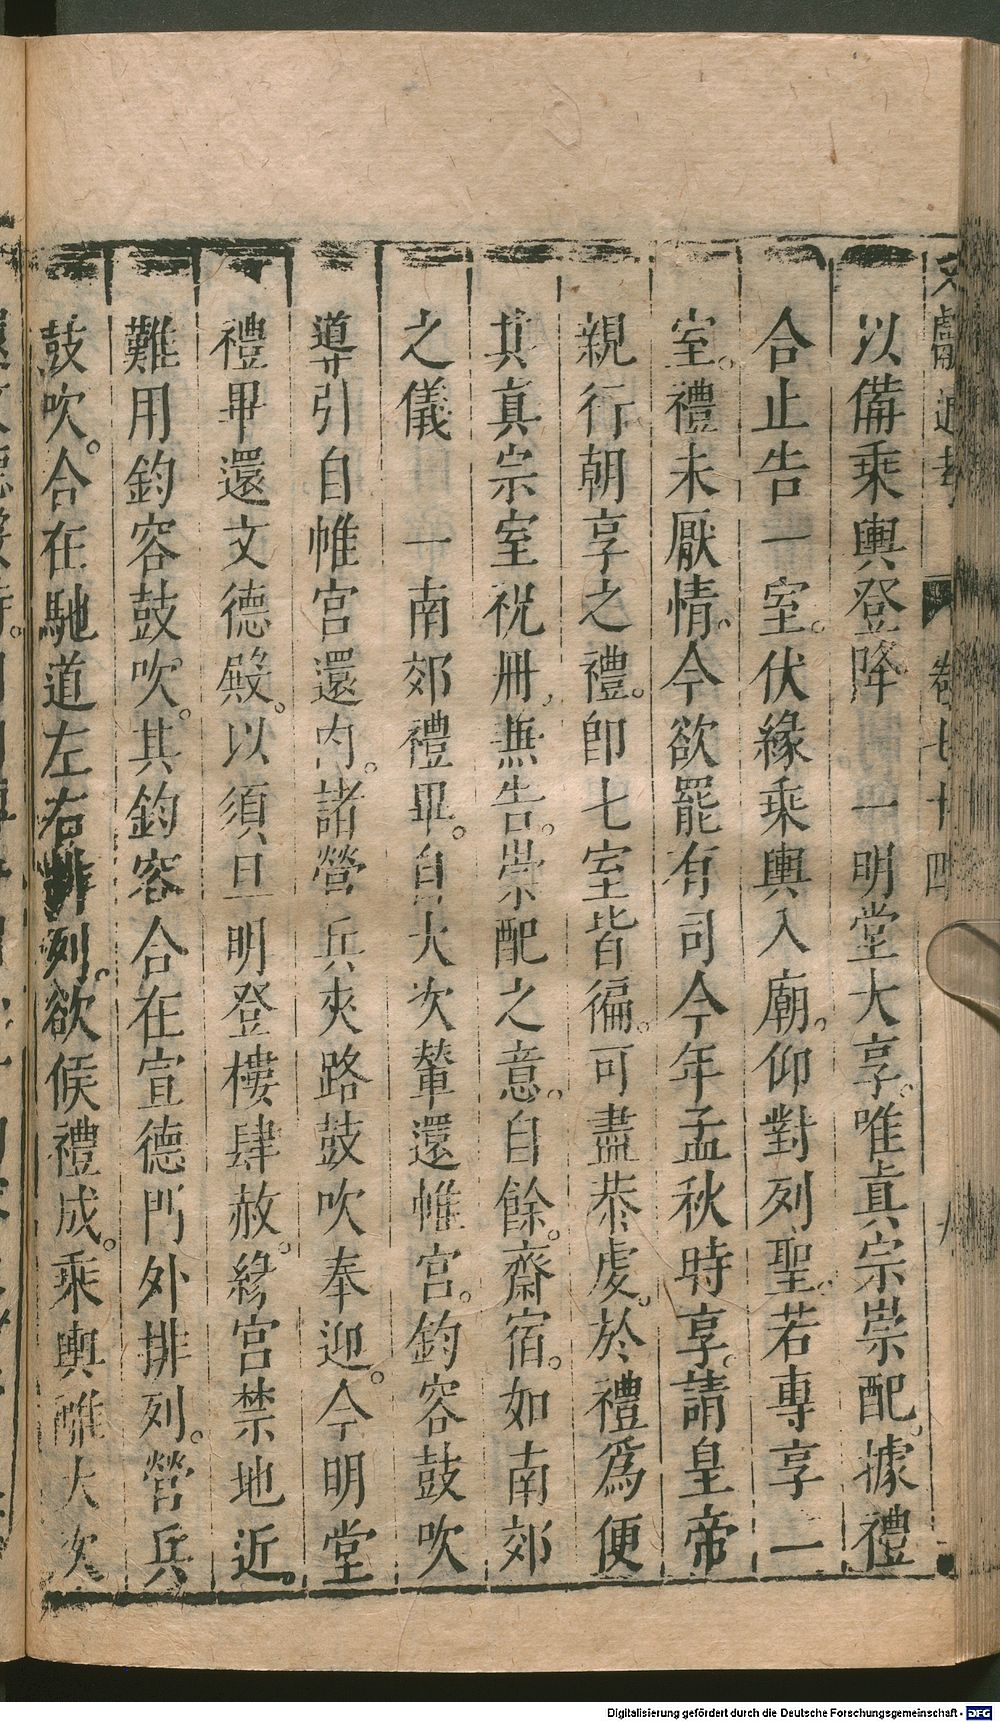 文獻通考 卷七十四 八
以備乘輿登降 一明堂大享。唯眞宗崇配。據禮
合止告一室。伏緣乘輿入廟。仰對列聖。若專享一
室。禮未厭情。今欲罷有司今年孟秋時享。請皇帝
親行朝享之禮。卽七室皆徧。可盡恭虔。於禮爲便
其真宗室祝冊。無告。崇配之意。自餘。齋宿。如南郊
之儀 一南郊禮畢。自大次輦還帷宮。鈞容鼓吹
導引自帷宮還內。諸營兵夾路鼓吹奉迎。今明堂
禮畢還文德殿。以須旦明登樓肆赦。緣宮禁地近。
難用鈞容鼓吹。其鈞容合在宣德門外排列。營兵
鼓吹。合在馳道左右排列。欲候禮成。乘輿離大次
Digitalisierung gefördert durch die Deutsche Forschungsgemeinschaft - DFG